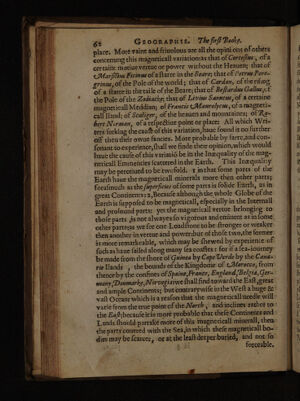 62 GEOGRAPHIE. The first Booke.
place. More vaine and friuolous are all the opinions of others
concerning this magneticall variation: as that of Cortesius, of a
certaine motiue vertue or power without the Heauen; that of
Marsilius Ficinus of a starre in the Beare; that of Petrus Pere-
grinus, of the Pole of the world; that of Cardan, of the rising
of a starre in the taile of the Beare; that of Bessardus Gallus, of
the Pole of the Zodiacke; that of Levinus Lemnius, of a certaine
magneticall Mountaine; of Francis Maurolycus, of a magneti-
call Iland; of Scaliger, of the heauen and mountaines; of Ro-
bert Norman, of a respectiue point or place. All which Wri-
ters seeking the cause of this variation, haue found it no further
off then their owne fancies. More probable by farre, and con-
sonant to experience, shall we finde their opinion, which would
haue the cause of this variatiō be in the Inæquality of the mag-
neticall Eminencies scattered in the Earth. This Inæquality
may be perceiued to be twofold. 1 in that some parts of the
Earth haue the magneticall mineralls more then other parts;
forasmuch as the superficies of some parts is solide Earth, as in
great Continents: 2, Because although the whole Globe of the
Earth is supposed to be magneticall, especially in the Internall
and profound parts: yet the magneticall vertue belonging to
those parts, is not alwayes so vigorous and eminent as in some
other parts; as we see one Loadstone to be stronger or weaker
then another in vertue and power: but of these two, the former
is more remarkeable, which may be shewed by experience of
such as haue sailed along many sea coasts: for if a sea-country
be made from the shore of Guinea by Cape Verde by the Cana-
rie Ilands, the bounds of the Kingdome of Marocco, from
thence by the confines of Spaine, France, England, Belgia, Ger-
many, Denmarke, Norwey: we shall find toward the East, great
and ample Continents; but contrarywise in the West a huge &
vast Ocean: which is a reason that the magneticall needle will
varie from the true point of the North, and incline rather to
the East: because it is more probable that these Continents and
Lands should partake more of this magneticall minerall, then
the parts couered with the Sea, in which these magneticall bo-
dies may be scarcer, or at the least deeper buried, and not so
forceable.